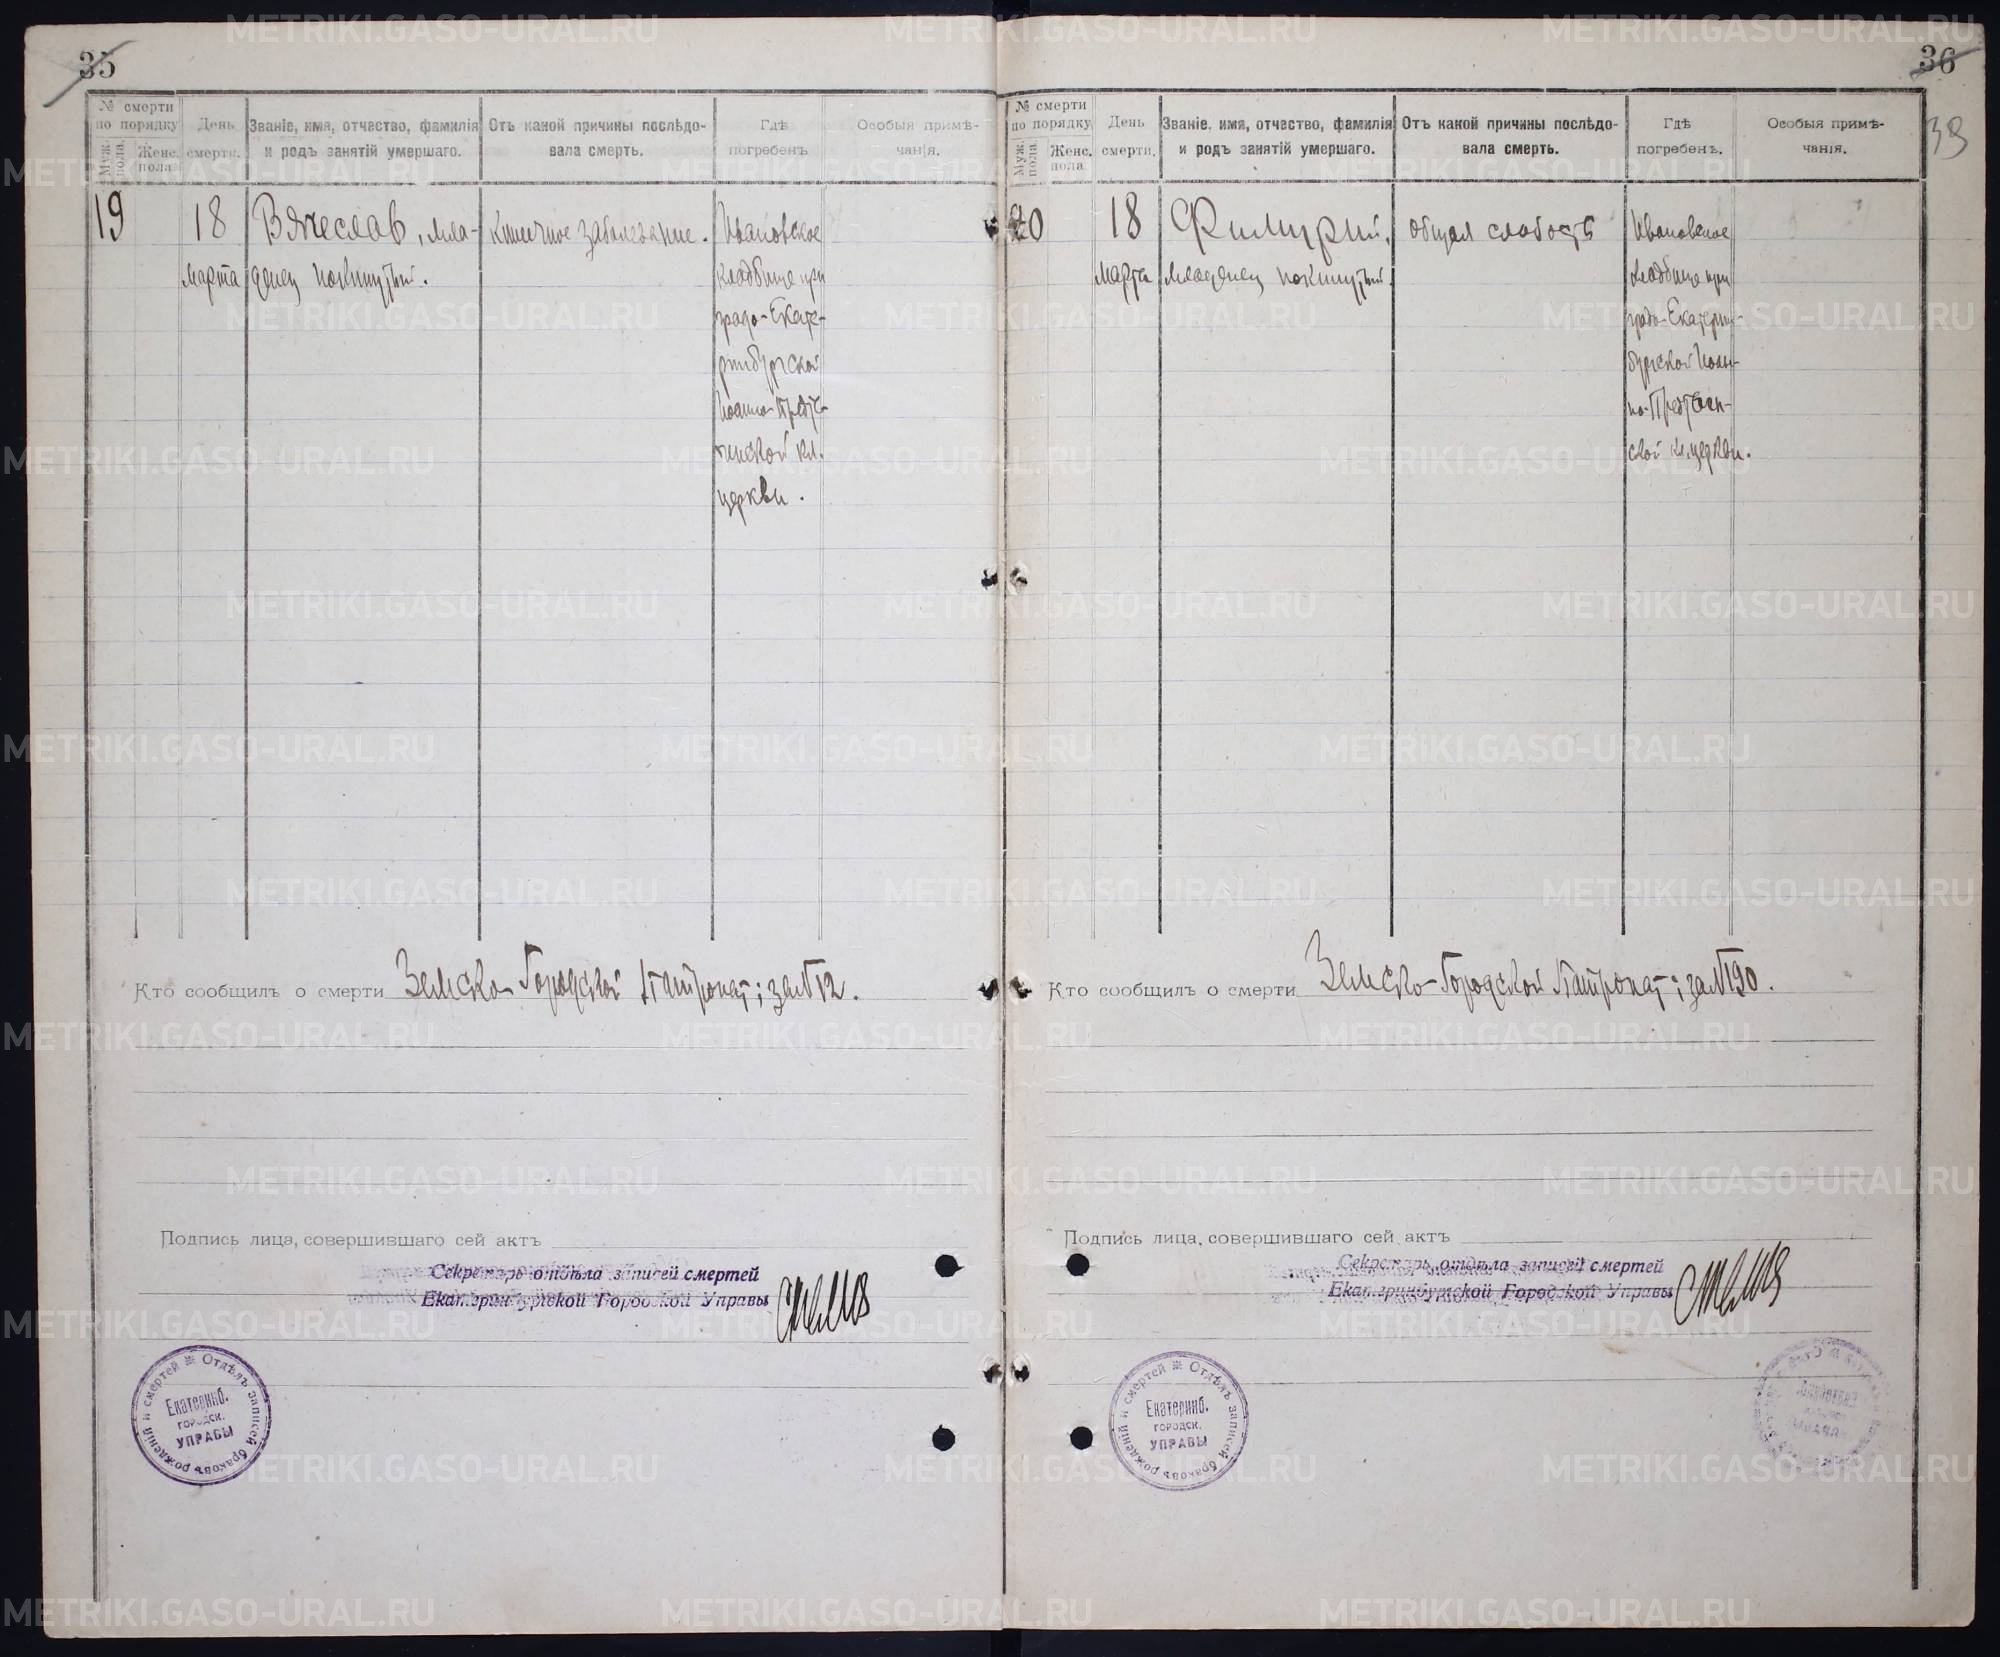 35
№ смерти по порядку
Муж. пола.
Женс. пола
День смерти.
Званіе, имя, отчество, фамилія и родъ занятій умершаго.
Отъ какой причины послѣдовала смерть.
Гдѣ погребенъ
Особыя примѣчанія.
19
18
Марта
Вячеслав, мла-
денец покинутый.
Кишечное заболевание.
Ивановское
кладбище при
градо-Екате-
ринбургской
Иоанно-Предте-
ченской кл.
церкви.
Кто сообщилъ о смерти Земско-Городской Патронат; за № 12.
Подпись лица, совершившаго сей актъ
Секретарь отдѣла записей смертей
Екатеринбургской Городской Управы
Отдѣлъ записей браковъ рожденій и смертей
Екатеринб.
городск.
УПРАВЫ
36
38
№ смерти по порядку
Муж. пола.
Женс. пола
День смерти.
Званіе, имя, отчество, фамилія и родъ занятій умершаго.
Отъ какой причины послѣдовала смерть.
Гдѣ погребенъ.
Особыя примѣчанія.
20
18
Марта
младенец покинутый.
общая слабость
Ивановское
кладбище при
градо-Екатерин-
бургской Иоан-
но-Предтечен-
ской кл. церкви.
Кто сообщилъ о смерти Земско-Городской Патронат; за № 190.
Подпись лица, совершившаго сей актъ
Секретарь отдѣла записей смертей
Екатеринбургской Городской Управы
Отдѣлъ записей браковъ рожденій и смертей
Екатеринб.
городск.
УПРАВЫ
METRIKI.GASO-URAL.RU